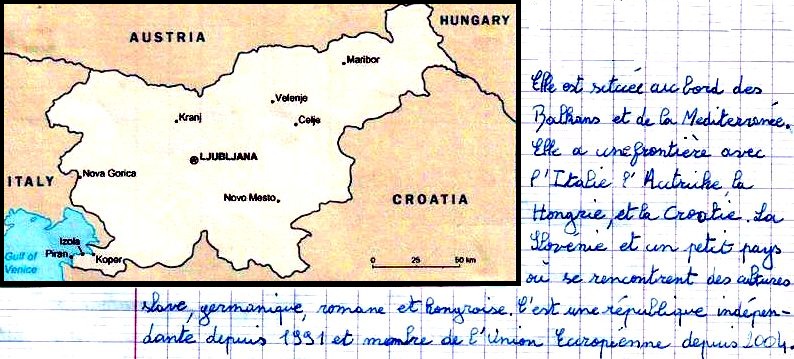 AUSTRIA
HUNGARY
Maribor
Velenje
Kranj
Celje
LJUBLJANA
ITALY
Nova Gorica
Novo Mesto
CROATIA
Izola
Piran
Koper
Gulf of
Venice
0 25 50 km
Elle est située au bord des
Balkans et de la Mediterranée.
Elle a une frontière avec
l'Italie l'Autriche, la
Hongrie, et la Croatie. La
Slovénie et un petit pays
où se rencontrent des cultures
slave, germanique, romane et hongroise. C'est une république indépen-
dante depuis 1991 et membre de l'Union Européenne depuis 2004.